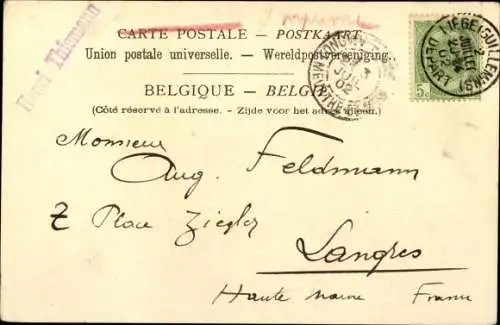 Henri Thiemann
Imprimé
CARTE POSTALE - POSTKAART
Union postale universelle. - Wereldpostvereeniging.
BELGIQUE - BELGIË
(Côté réservé à l'adresse. - Zijde voor het adres alleen.)
LIEGE (GUILLEMINS)
2
JUILLET
02
DEPART
5c
JUIL
02
Monsieur
Aug. Feldmann
7 Place Ziegler
Langres
Haute Marne France